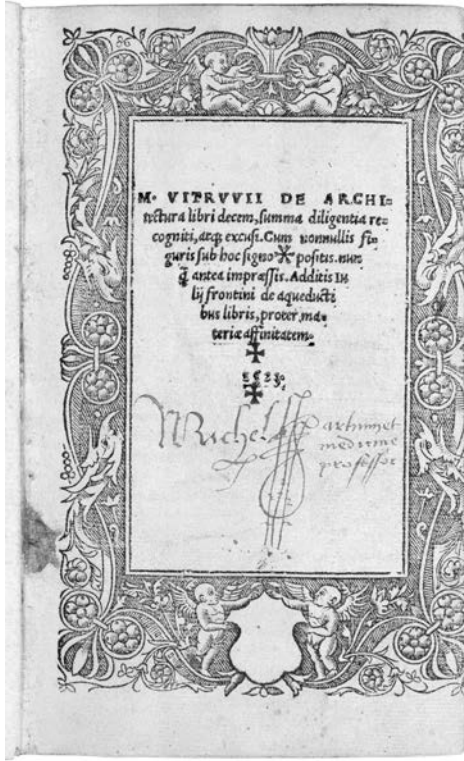 M. VITRVVII DE ARCHI=
tectura libri decem, summa diligentia re=
cogniti, atq; excusi. Cum nonnullis fi=
guris sub hoc signo positis. nun
q̃ antea impræssis. Additis Iu
lij frontini de aqueducti
bus libris, propter, ma=
teriæ affinitatem.
1523.
Michel artium et
medicine
professor